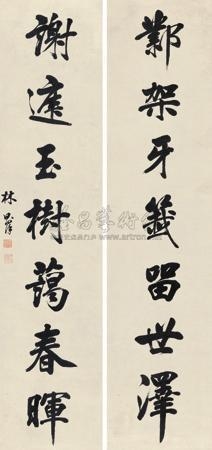 鄴架牙籤留世澤
謝庭玉樹藹春暉
林則徐
www.artron.net